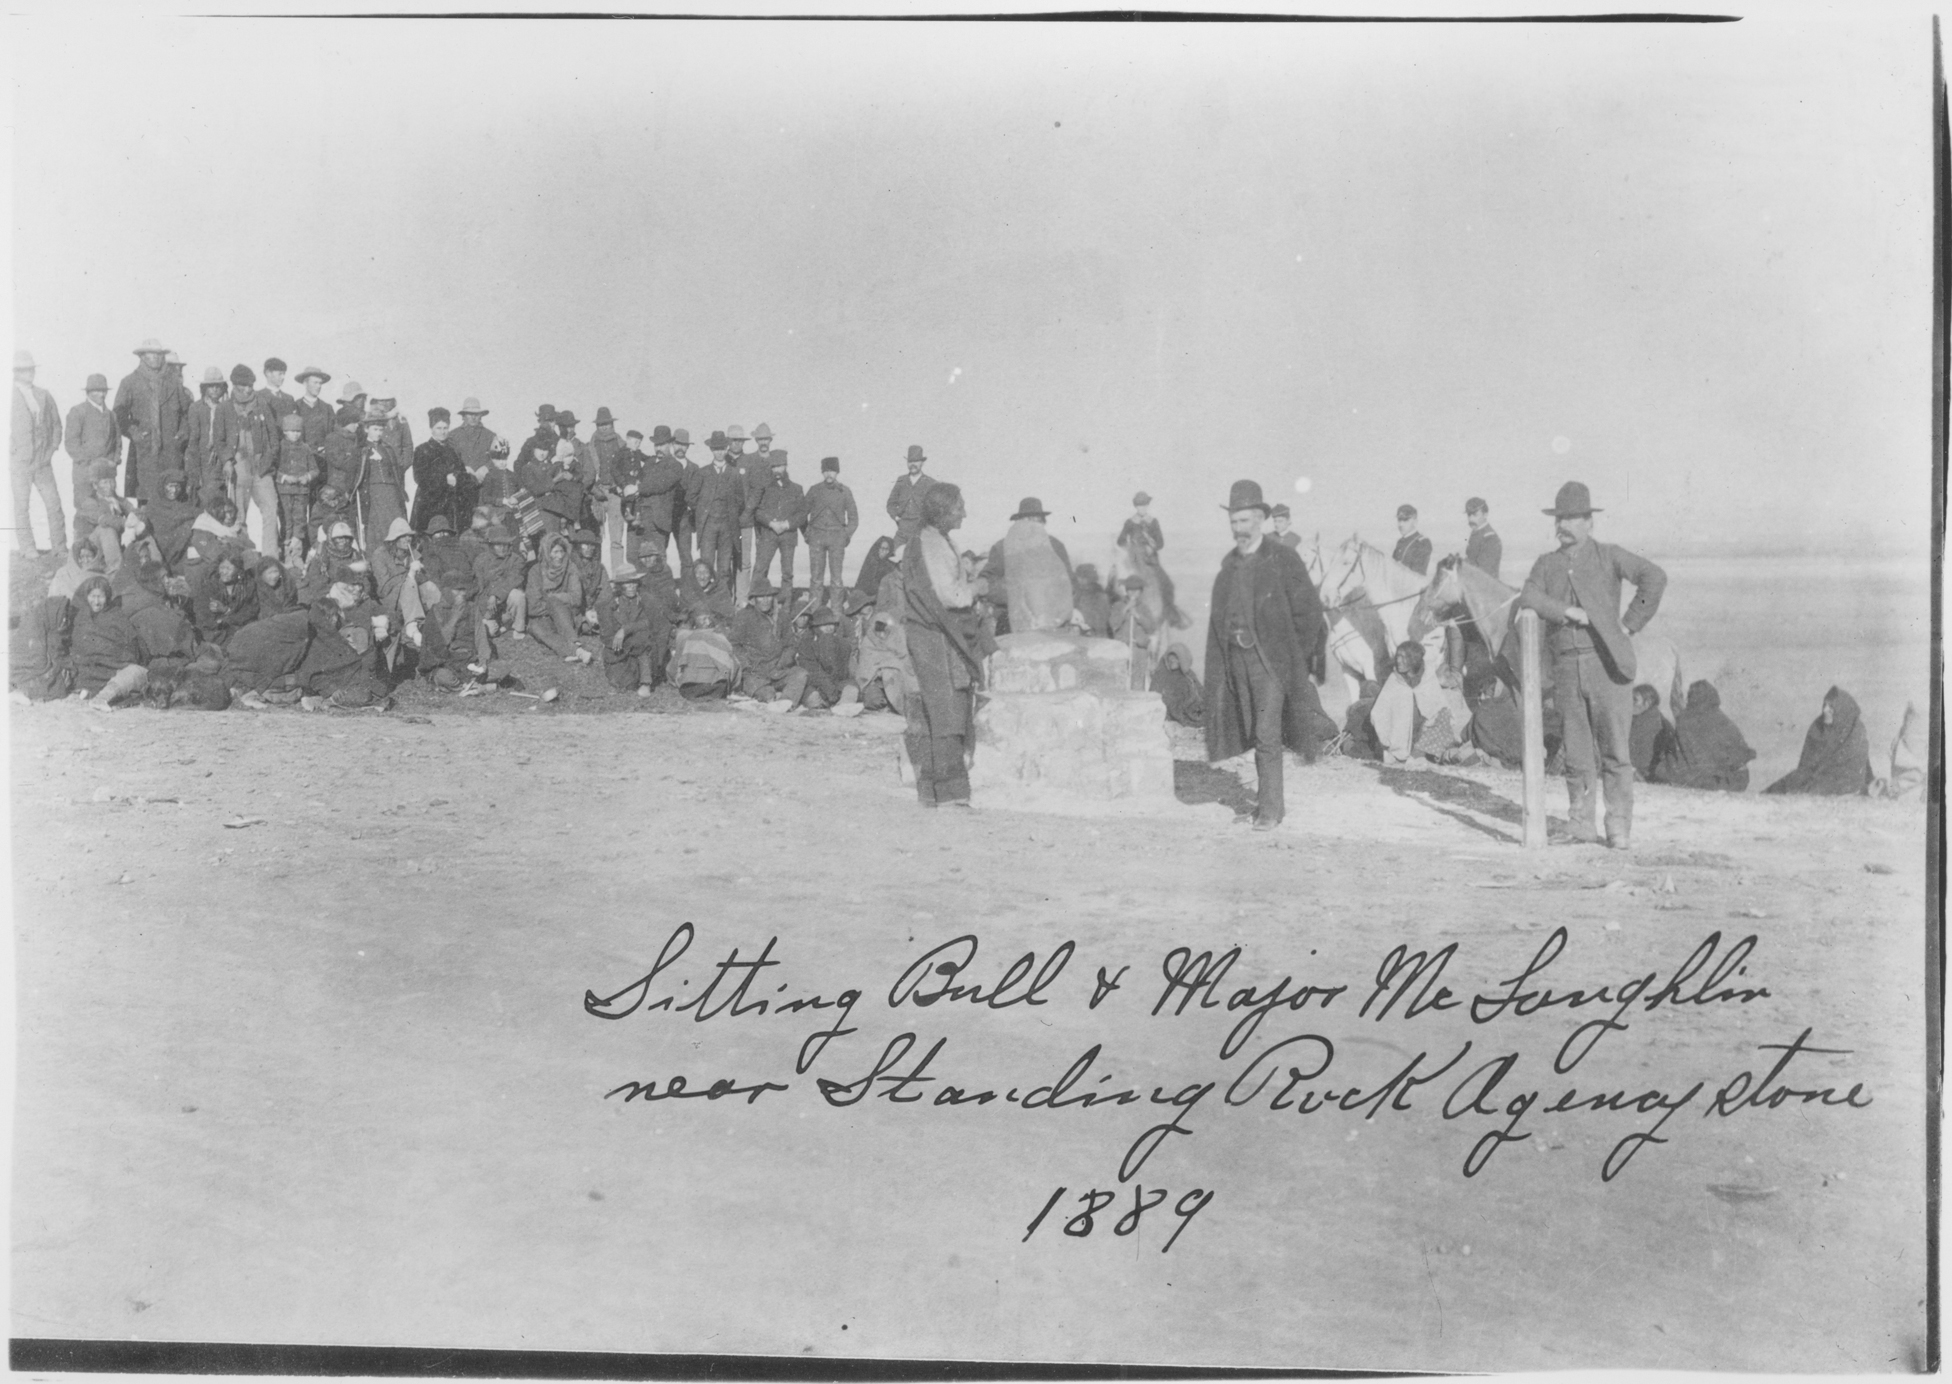 Sitting Bull & Major Mc Loughlin
near Standing Rock Agency stone
1889